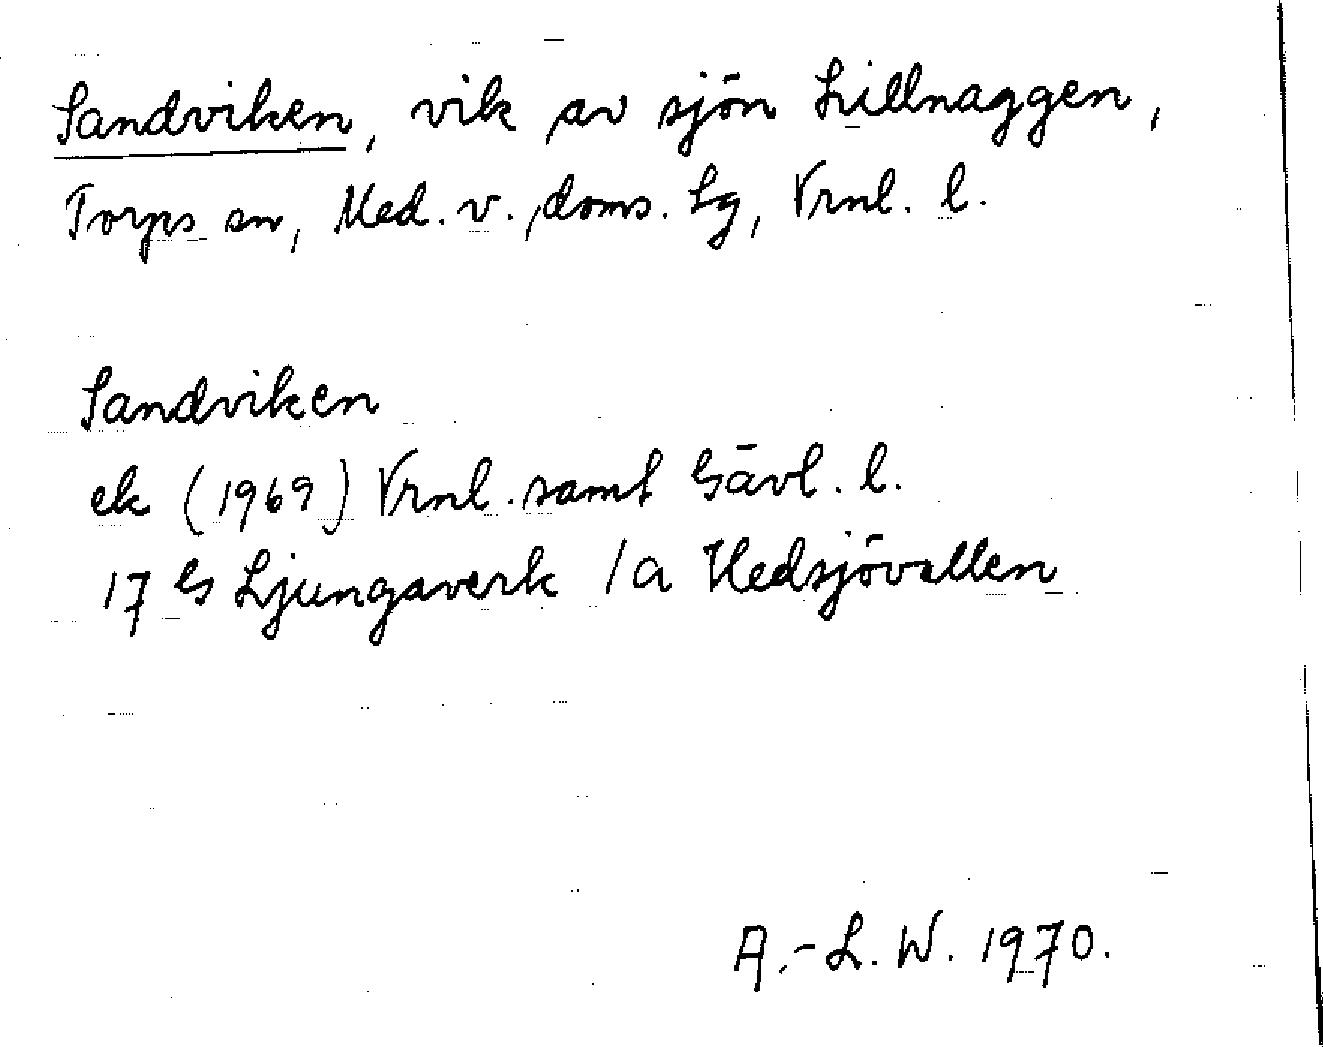 Sandviken, vik av sjön Lillnaggen,
Torps sn, Med. v. doms. Lg, Vrnl. l.
Sandviken
ek (1969) Vrnl. samt Gävl. l.
17 G Ljungaverk /a Hedsjövallen
A.-L. W. 1970.